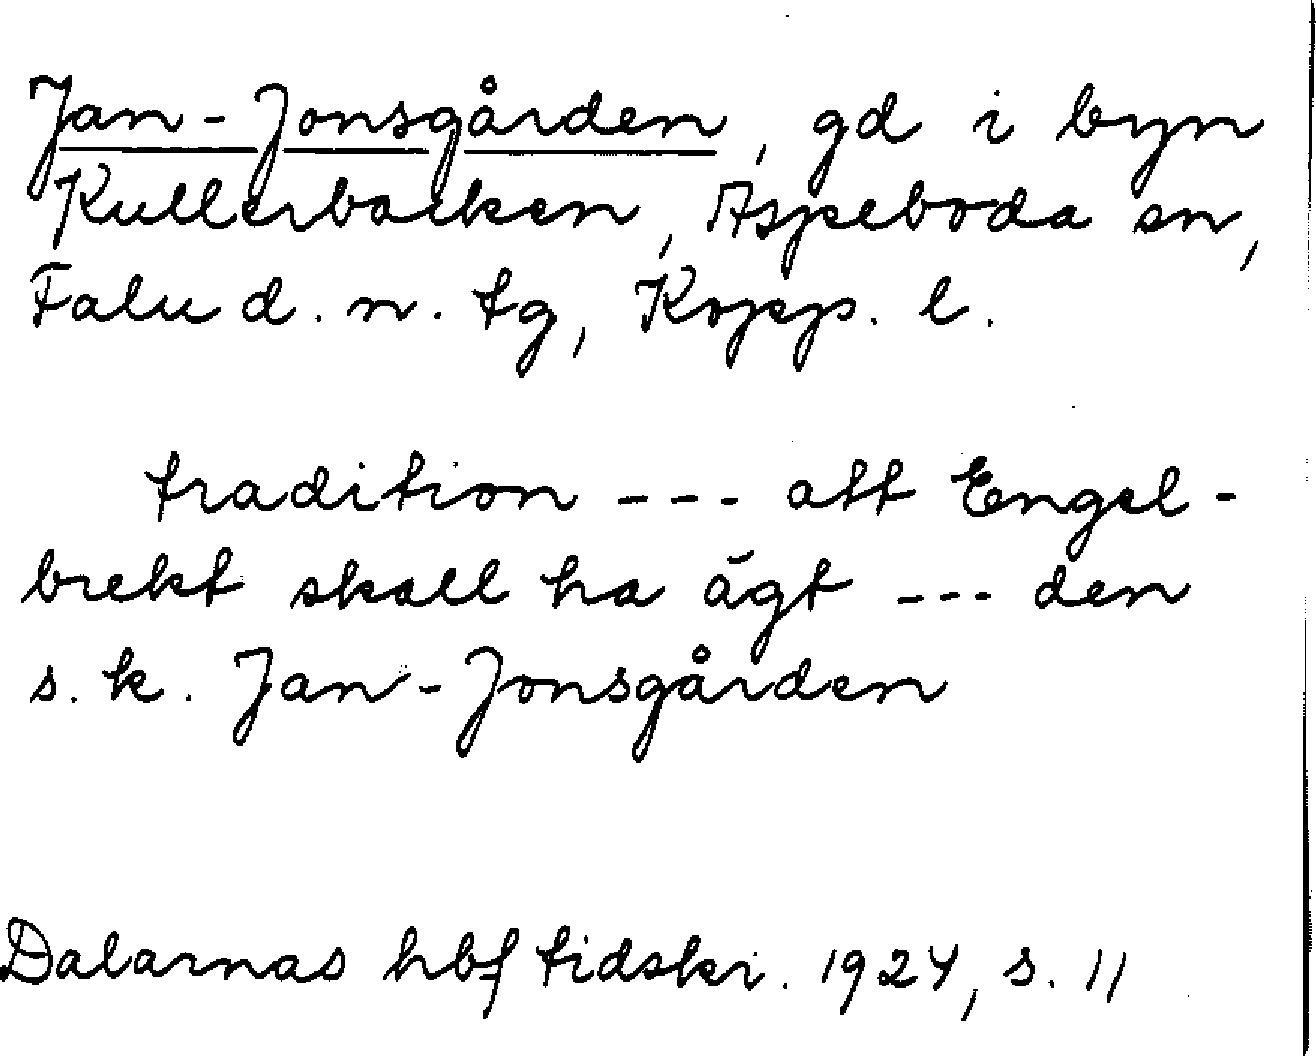 Jan-Jonsgården, gd i byn
Kullerbacken, Aspeboda sn,
Falu d. n. tg, Kopp. l.
tradition --- att Engel-
brekt skall ha ägt --- den
s.k. Jan-Jonsgården
Dalarnas hbf tidskr. 1924, s. 11